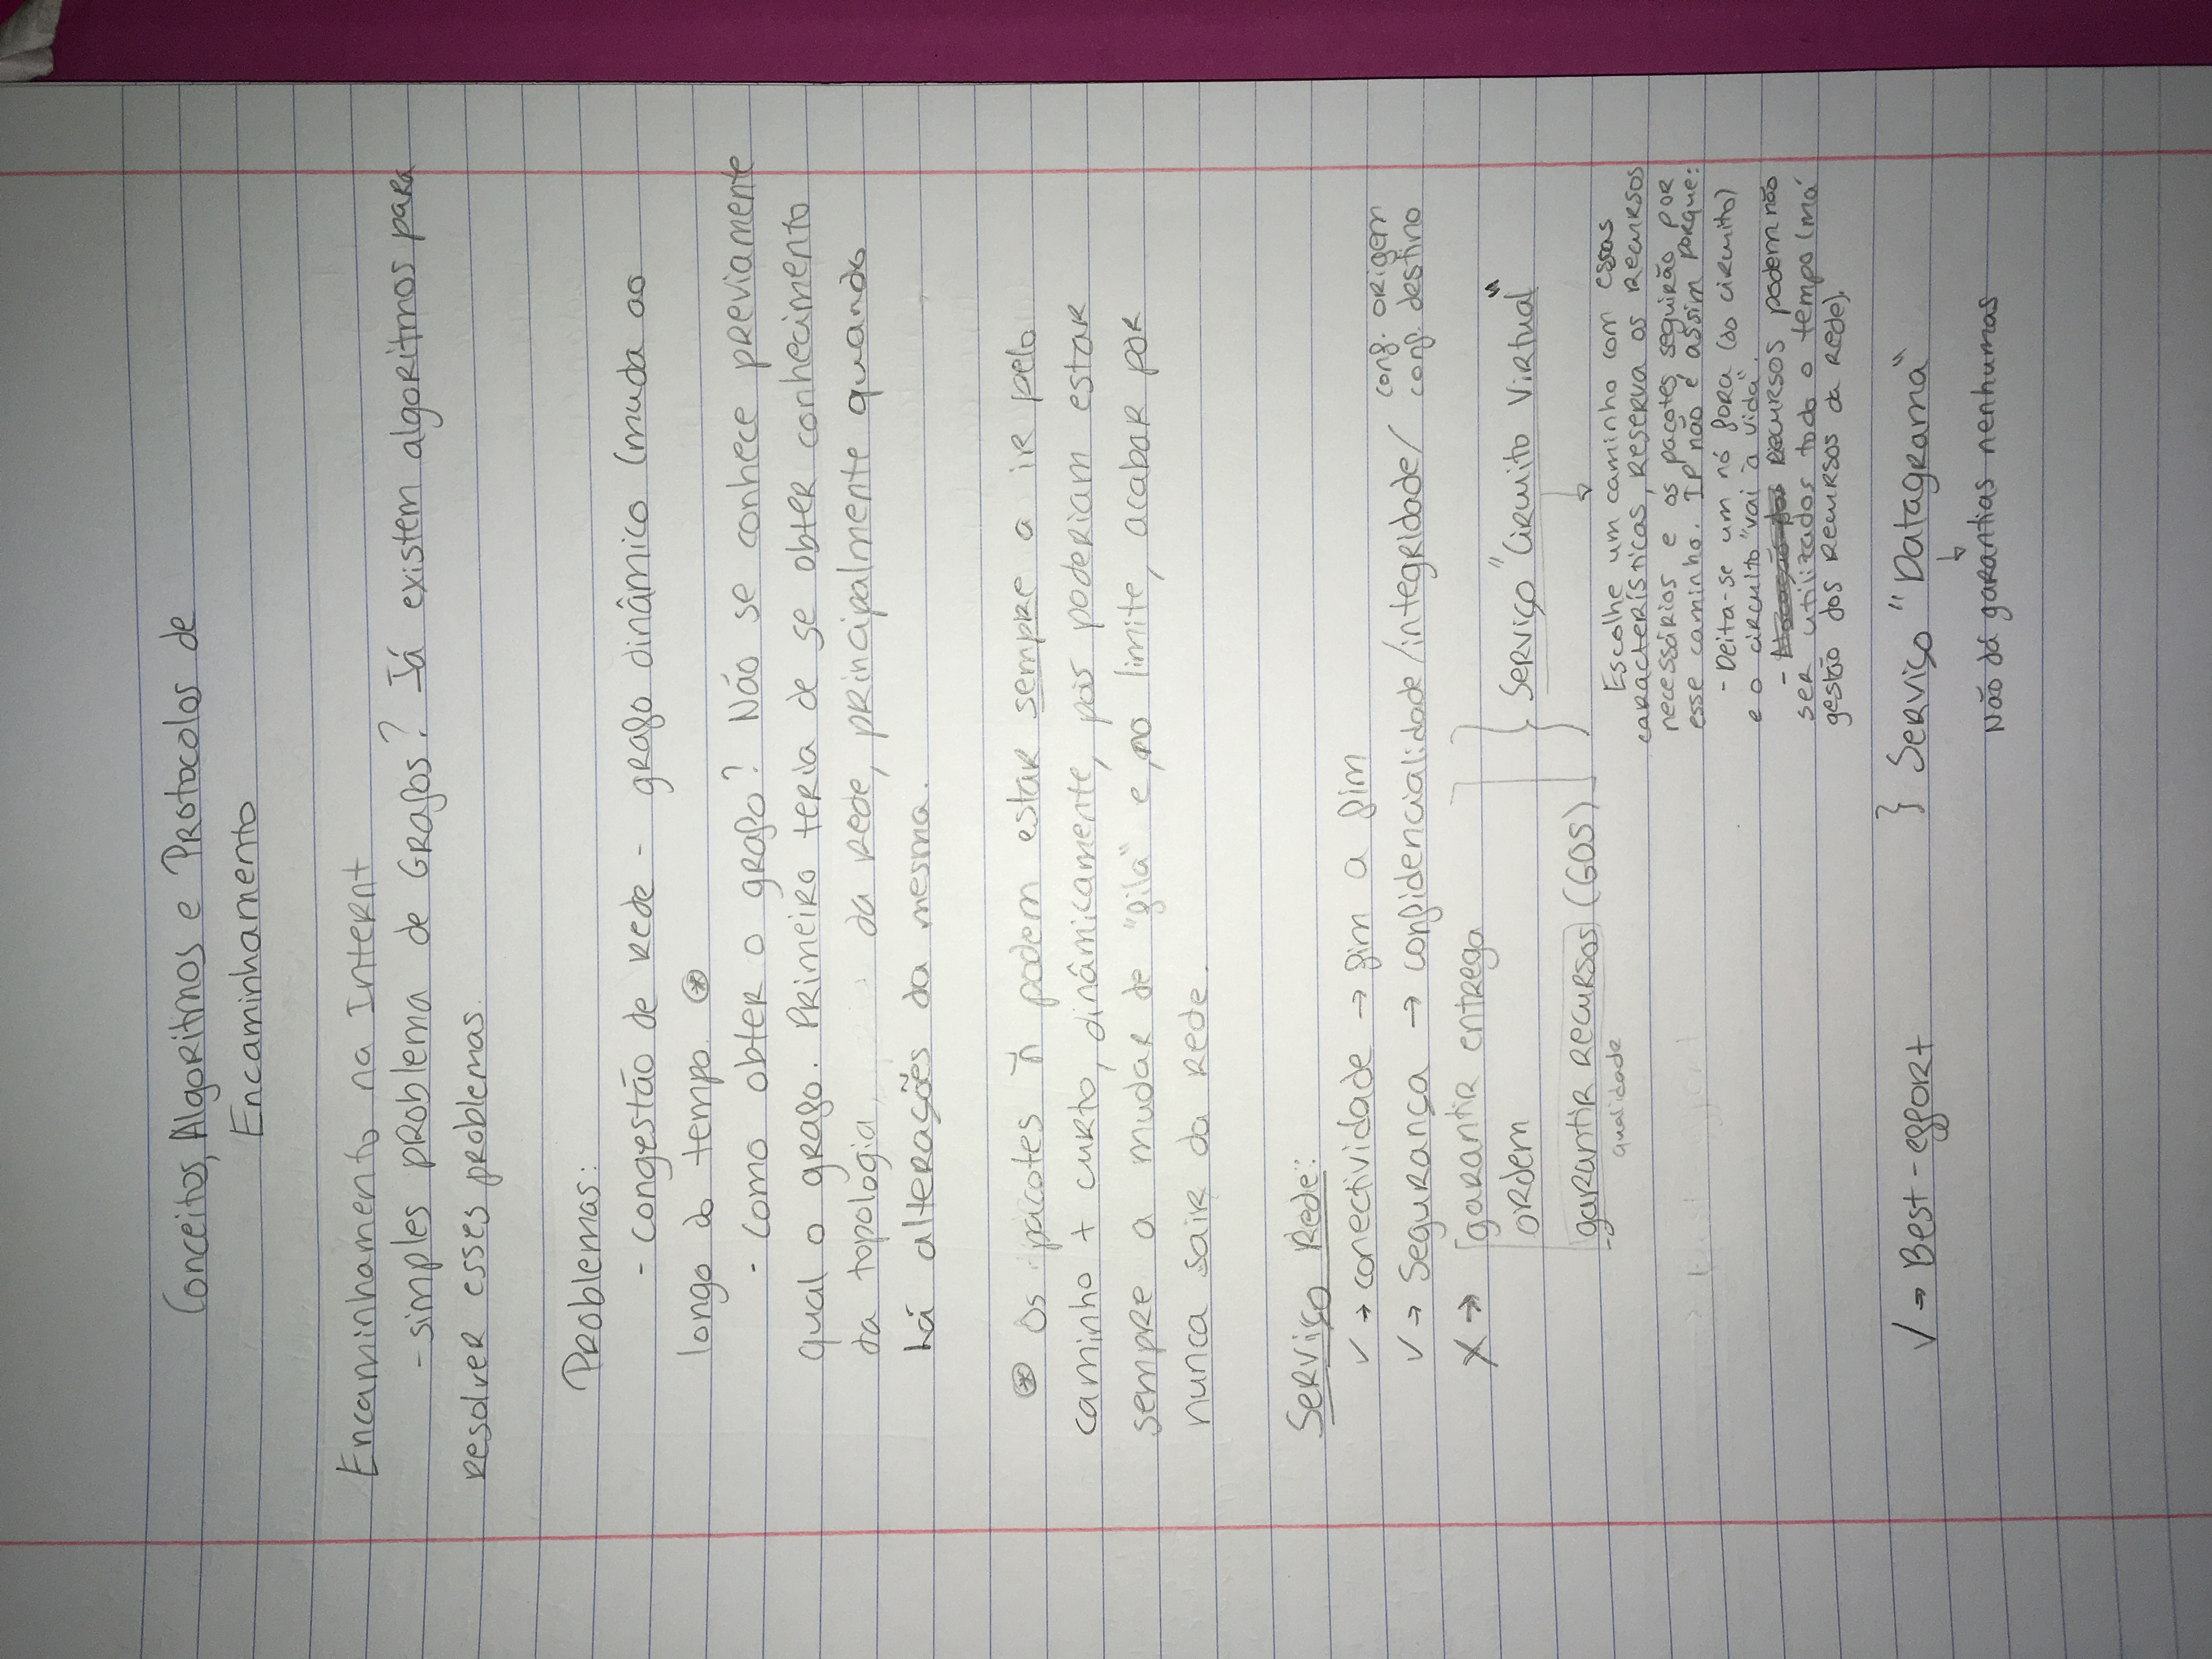 Conceitos, Algoritmos e Protocolos de
Encaminhamento
Encaminhamento na Internt
- simples problema de Grafos? Já existem algoritmos para
resolver esses problemas.
Problemas:
- congestão de rede - grafo dinâmico (muda ao
longo do tempo. ⊛
- como obter o grafo? Não se conhece previamente
qual o grafo. Primeiro teria de se obter conhecimento
da topologia, da rede, principalmente quando
há alterações da mesma.
⊛ Os pacotes ñ podem estar sempre a ir pelo
caminho + curto, dinâmicamente, pois poderiam estar
sempre a mudar de "fila" e, no limite, acabar por
nunca sair da rede.
Serviço Rede:
✓ → conectividade → fim a fim
✓ → Segurança → confidencialidade/integridade/ conf. origem
conf. destino
X → garantir entrega
ordem
garantir recursos (GOS)
qualidade
} Serviço "Circuito Virtual"
↓
Escolhe um caminho com essas
características, reserva os recursos
necessários e os pacotes seguirão por
esse caminho. IP não é assim porque:
- Deita-se um nó fora (do circuito)
e o circuito "vai à vida".
- Recursos podem não
ser utilizados todo o tempo (má
gestão dos recursos da rede).
✓ → Best-effort } Serviço "Datagrama"
↓
Não dá garantias nenhumas